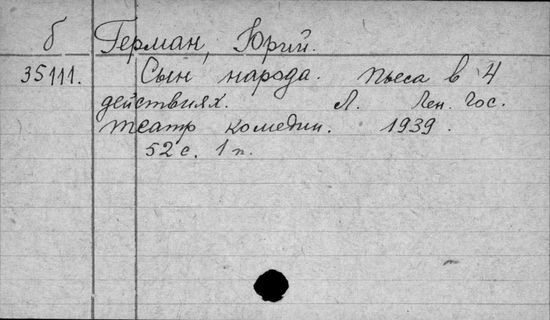 б Герман, Юрий.
35111. Сын народа. Пьеса в 4
действиях. Л. Лен. Гос.
театр комедии. 1939.
52 с. 1 п.